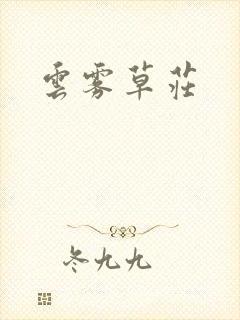 雲霧草莊
冬九九